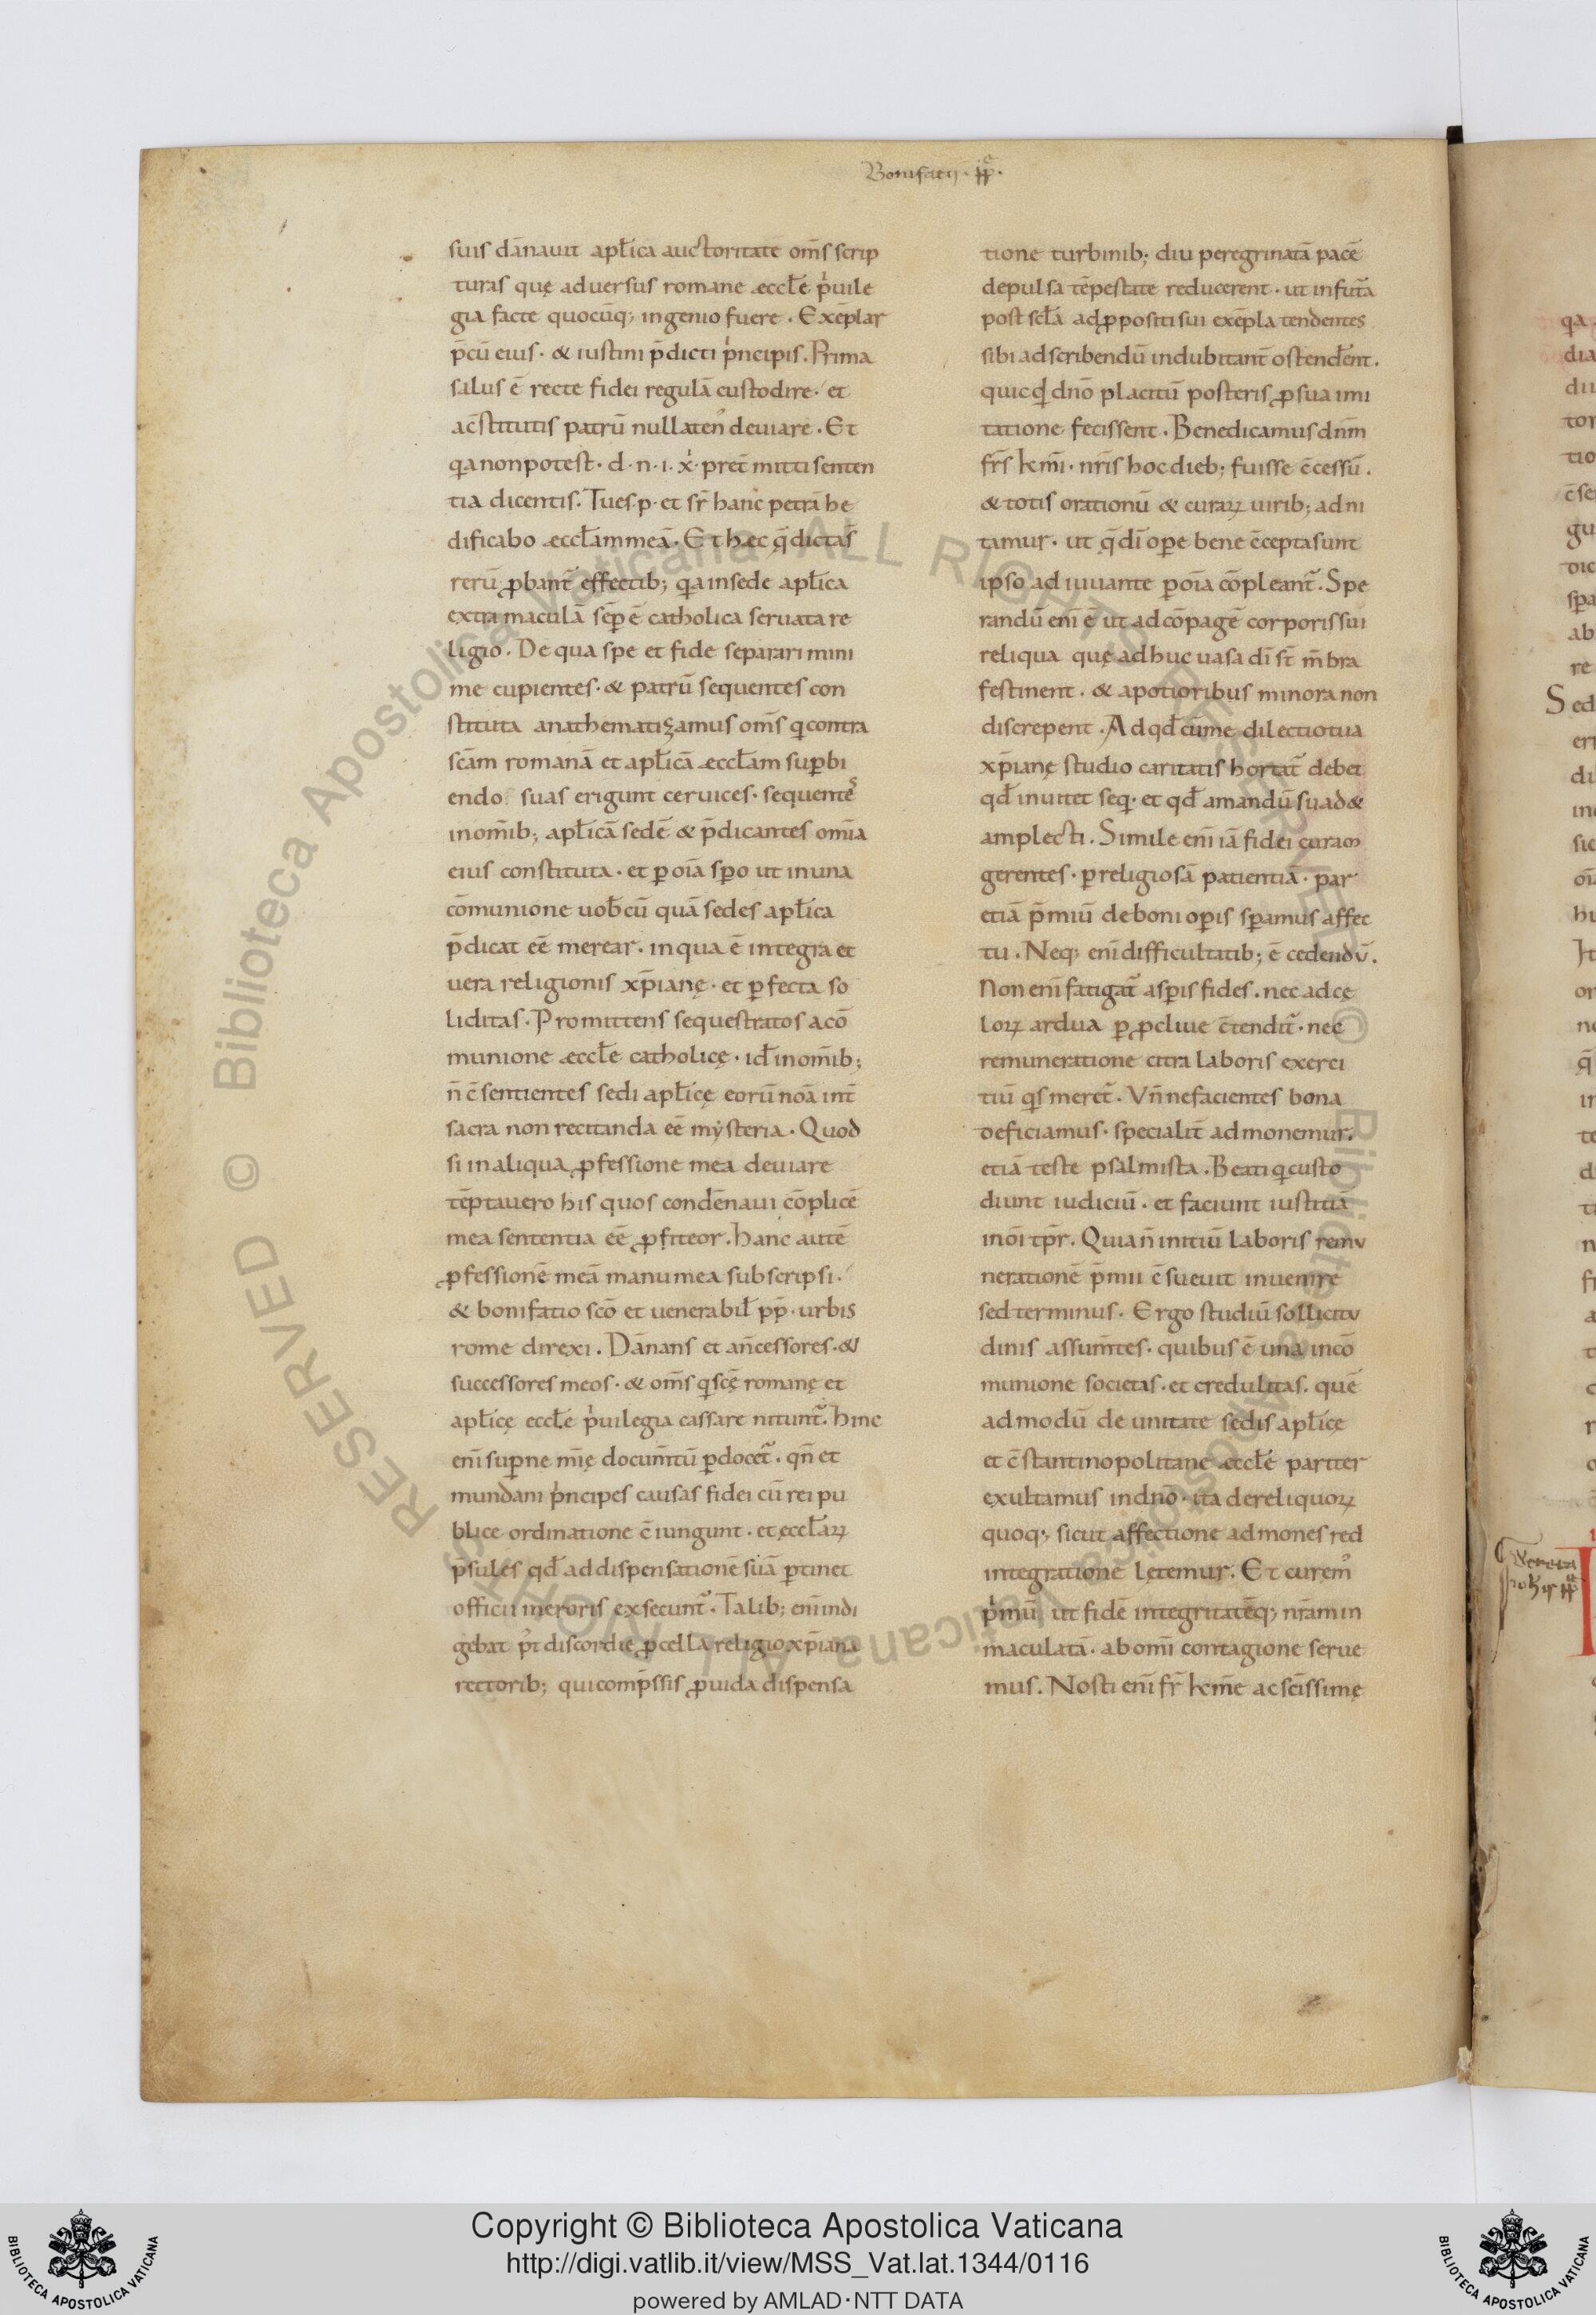 Bonifatii · pp̄a ·
suis dānauit apl̄ica auctoritate om̄s scrip
turas quę aduersus romane æccl̄e p̓uile
gia facte quocūq; ingenio fuere . Exēplar
p̄cū eius · & iustini p̄dicti p̓ncipis . Prima
salus ē recte fidei regulā custodire · et
ac̄stitutis patrū nullaten᾽ deuiare . Et
qa non potest · d · n · i · x̓ · pret̄ mitti senten
tia dicentis . Tu es · p · et sr̄ hanc petrā he
dificabo æccl̄am meā · Et hæc q̄ dicta s̄
rerū ꝓbant᷑ effectib; qa in sede apl̄ica
extra maculā sēꝑ ē catholica seruata re
ligio . De qua spe et fide separari mini
me cupientes · & patrū sequentes con
stituta anathematizamus om̄s qi contra
sc̄am romanā et apl̄icā æccl̄am suꝑbi
endo suas erigunt ceruices · sequentes
in om̄ib; apl̄icā sedē & p̄dicantes om̄ia
eius constituta · et ꝑ oīa sꝑo ut in una
cōmunione uob̄cū quā sedes apl̄ica
p̄dicat eē merear · in qua ē integra et
uera religionis xp̄ianę · et ꝑfecta so
liditas · Promittens sequestratos a cō
munione æccl̄e catholicę · id̄ in om̄ib;
n̄ c̄sentientes sedi apl̄icę eorū noā int̄
sacra non recitanda eē mẏsteria · Quod
si in aliqua ꝓfessione mea deuiare
tēptauero his quos condēnaui cōplicē
mea sententia eē ꝓfiteor . hanc autē
ꝓfessionē meā manu mea subscripsi ·
& bonifatio sc̄o et uenerabil̄ pp̄ · urbis
rome direxi . Dānans et an̄cessores · &
successores meos · & om̄s qi sc̄ę romanę et
apl̄icę eccl̄e p̓uilegia cassare nitunt᷑ . hinc
enī suꝑne mīę docum̄tū ꝑdocet᷑ · qn̄ et
mundani p̓ncipes causas fidei cū rei pu
blice ordinatione c̄iungunt · et ęccl̄aꝝ
p̄sules qd̄ ad dispensationē suā ꝑtinet
officii meroris exsecunt᷑ . Talib; enī indi
gebat p̓t discordię ꝓcella religio xp̄iana
rectorib; qui comp̄ssis ꝓuida dispensa
tione turbinib; diu peregrinatā pacē
depulsa tēpestate reducerent · ut in fut᷑a
post scl̄a ad ꝓpositi sui exēpla tendentes
sibi adscribendū indubitant̄ ostenderent .
quicqd dn̄o placitū posteris ꝓ sua imi
tatione fecissent . Benedicamus dn̄m
fr̄s km̄i · nr̄is hoc dieb; fuisse c̄cessū .
& totis orationū & curaꝝ uirib; adni
tamur · ut q̄ dī oꝑe bene c̄cepta sunt
ipso adiuuante ꝑ oīa cōpleant᷑ . Spe
randū enī ē ut ad cōpagē corporis sui
reliqua quę adhuc uasa dī st̄ m̄bra
festinent · & apotioribus minora non
discrepent . Ad qd̄ cū me dilectio tua
xp̄ianę studio caritatis hortat᷑ debet
qd̄ inuitet seq · et qd̄ amandū suad&
amplecti . Simile enī iā fidei curam
gerentes · ꝑ religiosā patientiā · par
etiā p̄miū de boni oꝑis sꝑamus affec
tu . Neq; enī difficultatib; ē cedendū .
Non enī fatigat᷑ asꝑis fides . nec ad cę
loꝝ ardua ꝑ ꝓcliue c̄tendit᷑ · nec
remuneratione citra laboris exerci
tiū qis meret᷑ . Vn̄ ne facientes bona
deficiamus · specialit̄ admonemur ·
etiā teste psalmista . Beati qi custo
diunt iudiciū · et faciunt iustitiā
in oī tp̄r . Quia n̄ initiū laboris remu
nerationē p̄mii c̄sueuit inuenire
sed terminus . Ergo studiū sollicitu
dinis assum̄tes · quibus ē una in cō
munione societas · et credulitas . quē
admodū de unitate sedis apl̄icę
et c̄stantinopolitane æccl̄e pariter
exultamus in dn̄o · ita de reliquoꝝ
quoq; sicut affectione admones red
integratione lętemur . Et curem᾽
p̓mū ut fidē integritatēq; nr̄am in
maculatā · ab omī contagione serue
mus . Nosti enī fr̄ km̄e ac sc̄issimę
Copyright © Biblioteca Apostolica Vaticana
http://digi.vatlib.it/view/MSS_Vat.lat.1344/0116
powered by AMLAD·NTT DATA